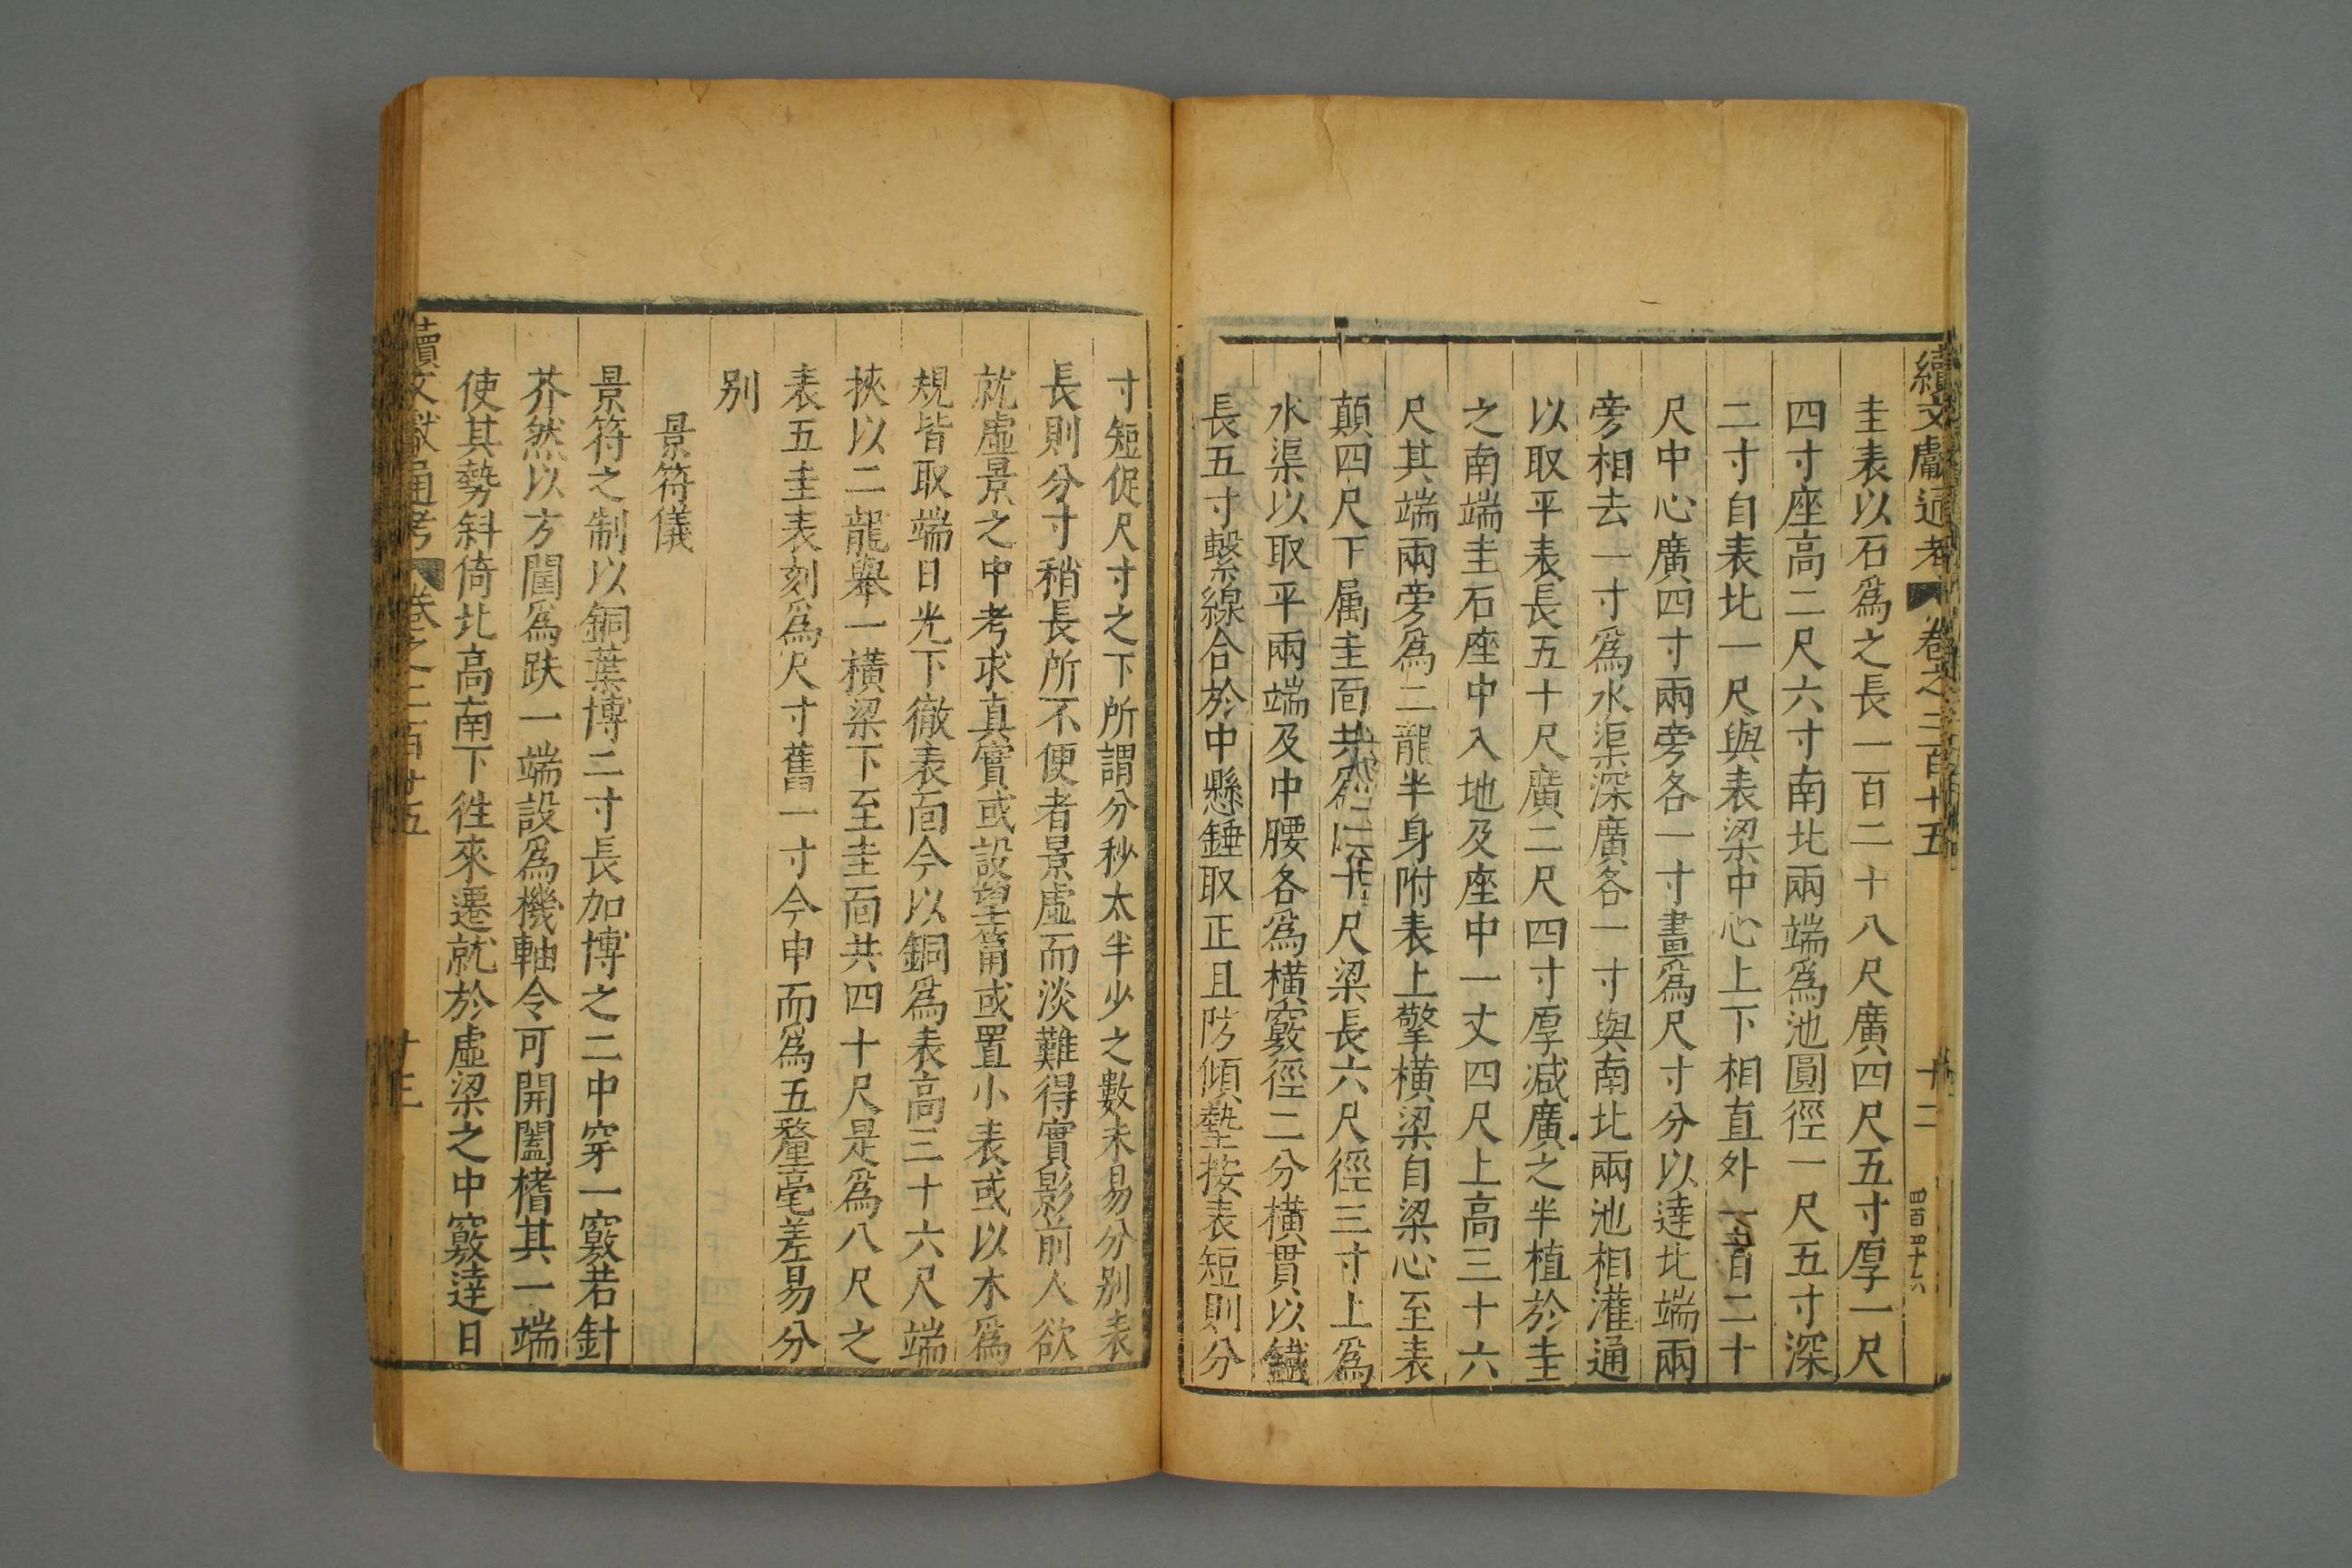 續文獻通考 卷之二百十五 十二 四百四十六
圭表以石爲之長一百二十八尺廣四尺五寸厚一尺
四寸座高二尺六寸南北兩端爲池圓徑一尺五寸深
二寸自表北一尺與表梁中心上下相直外一百二十
尺中心廣四寸兩旁各一寸畫爲尺寸分以達北端兩
旁相去一寸爲水渠深廣各一寸與南北兩池相灌通
以取平表長五十尺廣二尺四寸厚減廣之半植於圭
之南端圭石座中入地及座中一丈四尺上高三十六
尺其端兩旁爲二龍半身附表上擎橫梁自梁心至表
顛四尺下属圭面共爲四十尺梁長六尺徑三寸上爲
水渠以取平兩端及中腰各爲橫竅徑二分橫貫以鐵
長五寸繫線合於中懸錘取正且防傾墊按表短則分
寸短促尺寸之下所謂分秒太半少之數未易分别表
長則分寸稍長所不便者景虛而淡難得實影前人欲
就虛景之中考求真實或設望筩或置小表或以木爲
規皆取端日光下徹表面今以銅爲表高三十六尺端
挾以二龍舉一橫梁下至圭面共四十尺是爲八尺之
表五圭表刻爲尺寸舊一寸今申而爲五釐毫差易分
别
景符儀
景符之制以銅葉博二寸長加博之二中穿一竅若針
芥然以方闉爲趺一端設爲機軸令可開闔榰其一端
使其勢斜倚北高南下徃來遷就於虛梁之中竅達日
續文獻通考 卷之二百十五 十三